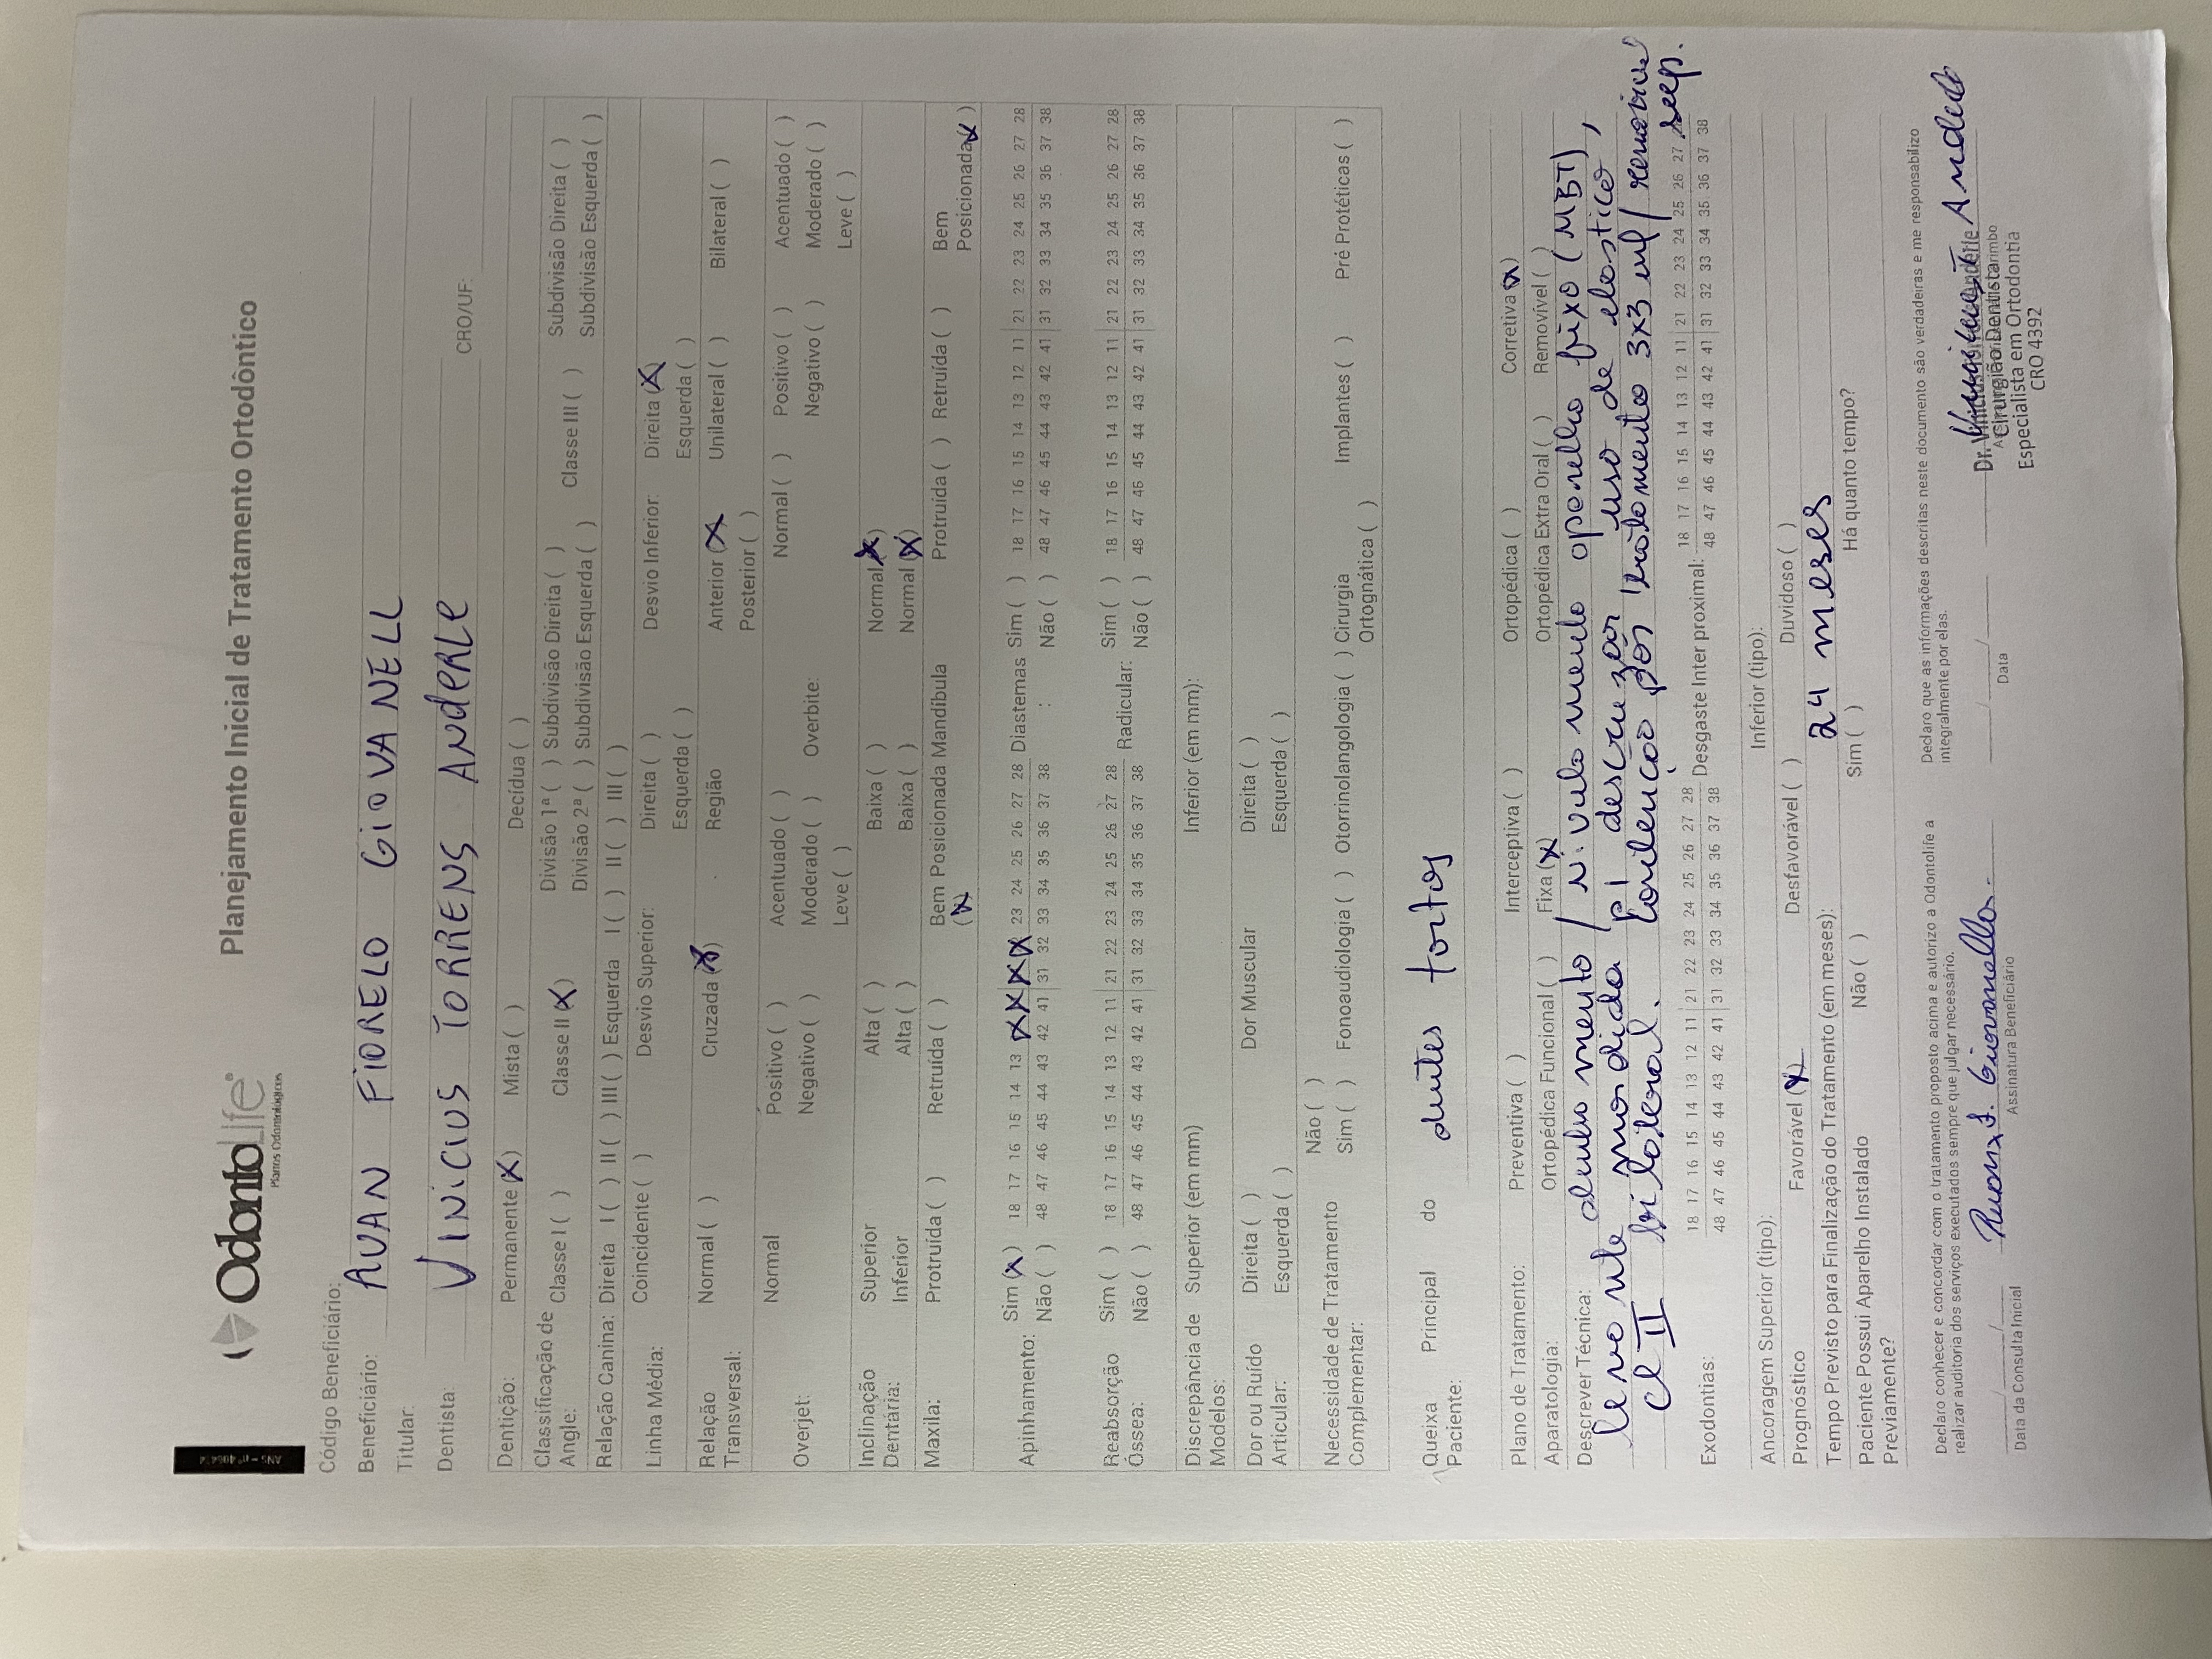 ANS - nº
OdontoLife
Planos Odontológicos
Planejamento Inicial de Tratamento Ortodôntico
Código Beneficiário:
Beneficiário: RUAN FIORELO GIOVANELL
Titular:
Dentista: VINICIUS TORRENS ANDERLE CRO/UF:
Dentição: Permanente (X) Mista ( ) Decídua ( )
Classificação de Angle: Classe I ( ) Classe II (X) Divisão 1ª ( ) Subdivisão Direita ( ) Classe III ( ) Subdivisão Direita ( )
Divisão 2ª ( ) Subdivisão Esquerda ( ) Subdivisão Esquerda ( )
Relação Canina: Direita I ( ) II ( ) III ( ) Esquerda I ( ) II ( ) III ( )
Linha Média: Coincidente ( ) Desvio Superior: Direita ( ) Desvio Inferior: Direita (X)
Esquerda ( ) Esquerda ( )
Relação Transversal: Normal ( ) Cruzada (X) Região Anterior (X) Unilateral ( ) Bilateral ( )
Posterior ( )
Overjet: Normal Positivo ( ) Acentuado ( ) Overbite: Normal ( ) Positivo ( ) Acentuado ( )
Negativo ( ) Moderado ( ) Negativo ( ) Moderado ( )
Leve ( ) Leve ( )
Inclinação Dentária: Superior Alta ( ) Baixa ( ) Normal (X)
Inferior Alta ( ) Baixa ( ) Normal (X)
Maxila: Protruída ( ) Retruída ( ) Bem Posicionada (X) Mandíbula Protruída ( ) Retruída ( ) Bem Posicionada (X)
Apinhamento: Sim (X) 18 17 16 15 14 13 X X X X 23 24 25 26 27 28 Diastemas : Sim ( ) 18 17 16 15 14 13 12 11 21 22 23 24 25 26 27 28
Não ( ) 48 47 46 45 44 43 42 41 31 32 33 34 35 36 37 38 Não ( ) 48 47 46 45 44 43 42 41 31 32 33 34 35 36 37 38
Reabsorção Óssea: Sim ( ) 18 17 16 15 14 13 12 11 21 22 23 24 25 26 27 28 Radicular: Sim ( ) 18 17 16 15 14 13 12 11 21 22 23 24 25 26 27 28
Não ( ) 48 47 46 45 44 43 42 41 31 32 33 34 35 36 37 38 Não ( ) 48 47 46 45 44 43 42 41 31 32 33 34 35 36 37 38
Discrepância de Modelos: Superior (em mm) Inferior (em mm):
Dor ou Ruído Articular: Direita ( ) Dor Muscular Direita ( )
Esquerda ( ) Esquerda ( )
Necessidade de Tratamento Complementar: Não ( )
Sim ( ) Fonoaudiologia ( ) Otorrinolangologia ( ) Cirurgia Ortognática ( ) Implantes ( ) Pré Protéticas ( )
Queixa Principal do Paciente: dentes tortos
Plano de Tratamento: Preventiva ( ) Interceptiva ( ) Ortopédica ( ) Corretiva (X)
Aparatologia: Ortopédica Funcional ( ) Fixa (X) Ortopédica Extra Oral ( ) Removível ( )
Descrever Técnica: alinhamento / nivelamento aparelho fixo (MBT),
levante mordida p/ descruzar uso de elastico
cl II bilateral. Contenção pós tratamento 3x3 inf / removivel sup.
Exodontias: 18 17 16 15 14 13 12 11 21 22 23 24 25 26 27 28 Desgaste Inter proximal: 18 17 16 15 14 13 12 11 21 22 23 24 25 26 27
48 47 46 45 44 43 42 41 31 32 33 34 35 36 37 38 48 47 46 45 44 43 42 41 31 32 33 34 35 36 37 38
Ancoragem Superior (tipo): Inferior (tipo):
Prognóstico Favorável (X) Desfavorável ( ) Duvidoso ( )
Tempo Previsto para Finalização do Tratamento (em meses): 24 meses
Paciente Possui Aparelho Instalado Previamente? Não ( ) Sim ( ) Há quanto tempo?
Declaro conhecer e concordar com o tratamento proposto acima e autorizo a Odontolife a
realizar auditoria dos serviços executados sempre que julgar necessário.
Declaro que as informações descritas neste documento são verdadeiras e me responsabilizo
integralmente por elas.
Data da Consulta Inicial
Assinatura Beneficiário
Data
Cirurgião Dentista
Especialista em Ortodontia
CRO 4392